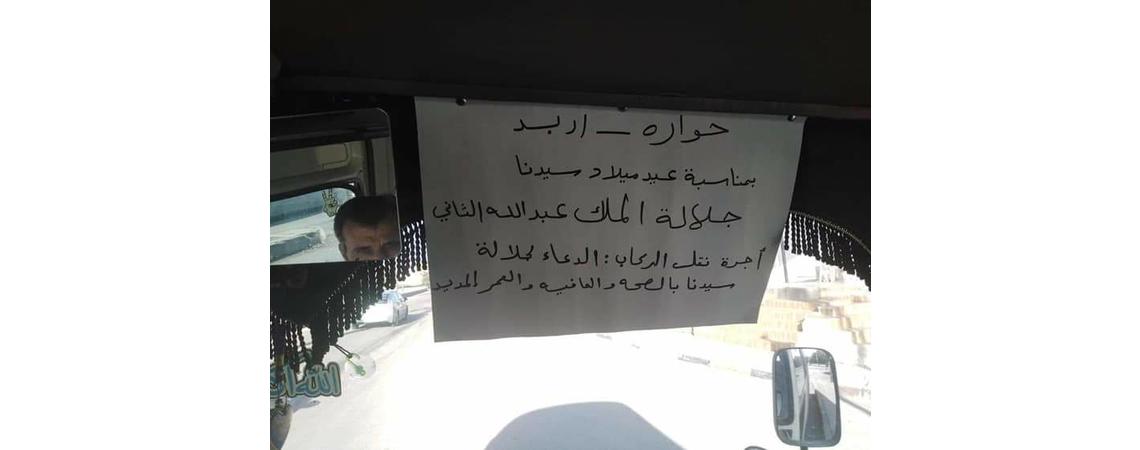 حواره - اربد
بمناسبة عيد ميلاد سيدنا
جلالة الملك عبدالله الثاني
أجرة نقل الركاب : الدعاء لجلالة
سيدنا بالصحه والعافيه والعمر المديد
الله